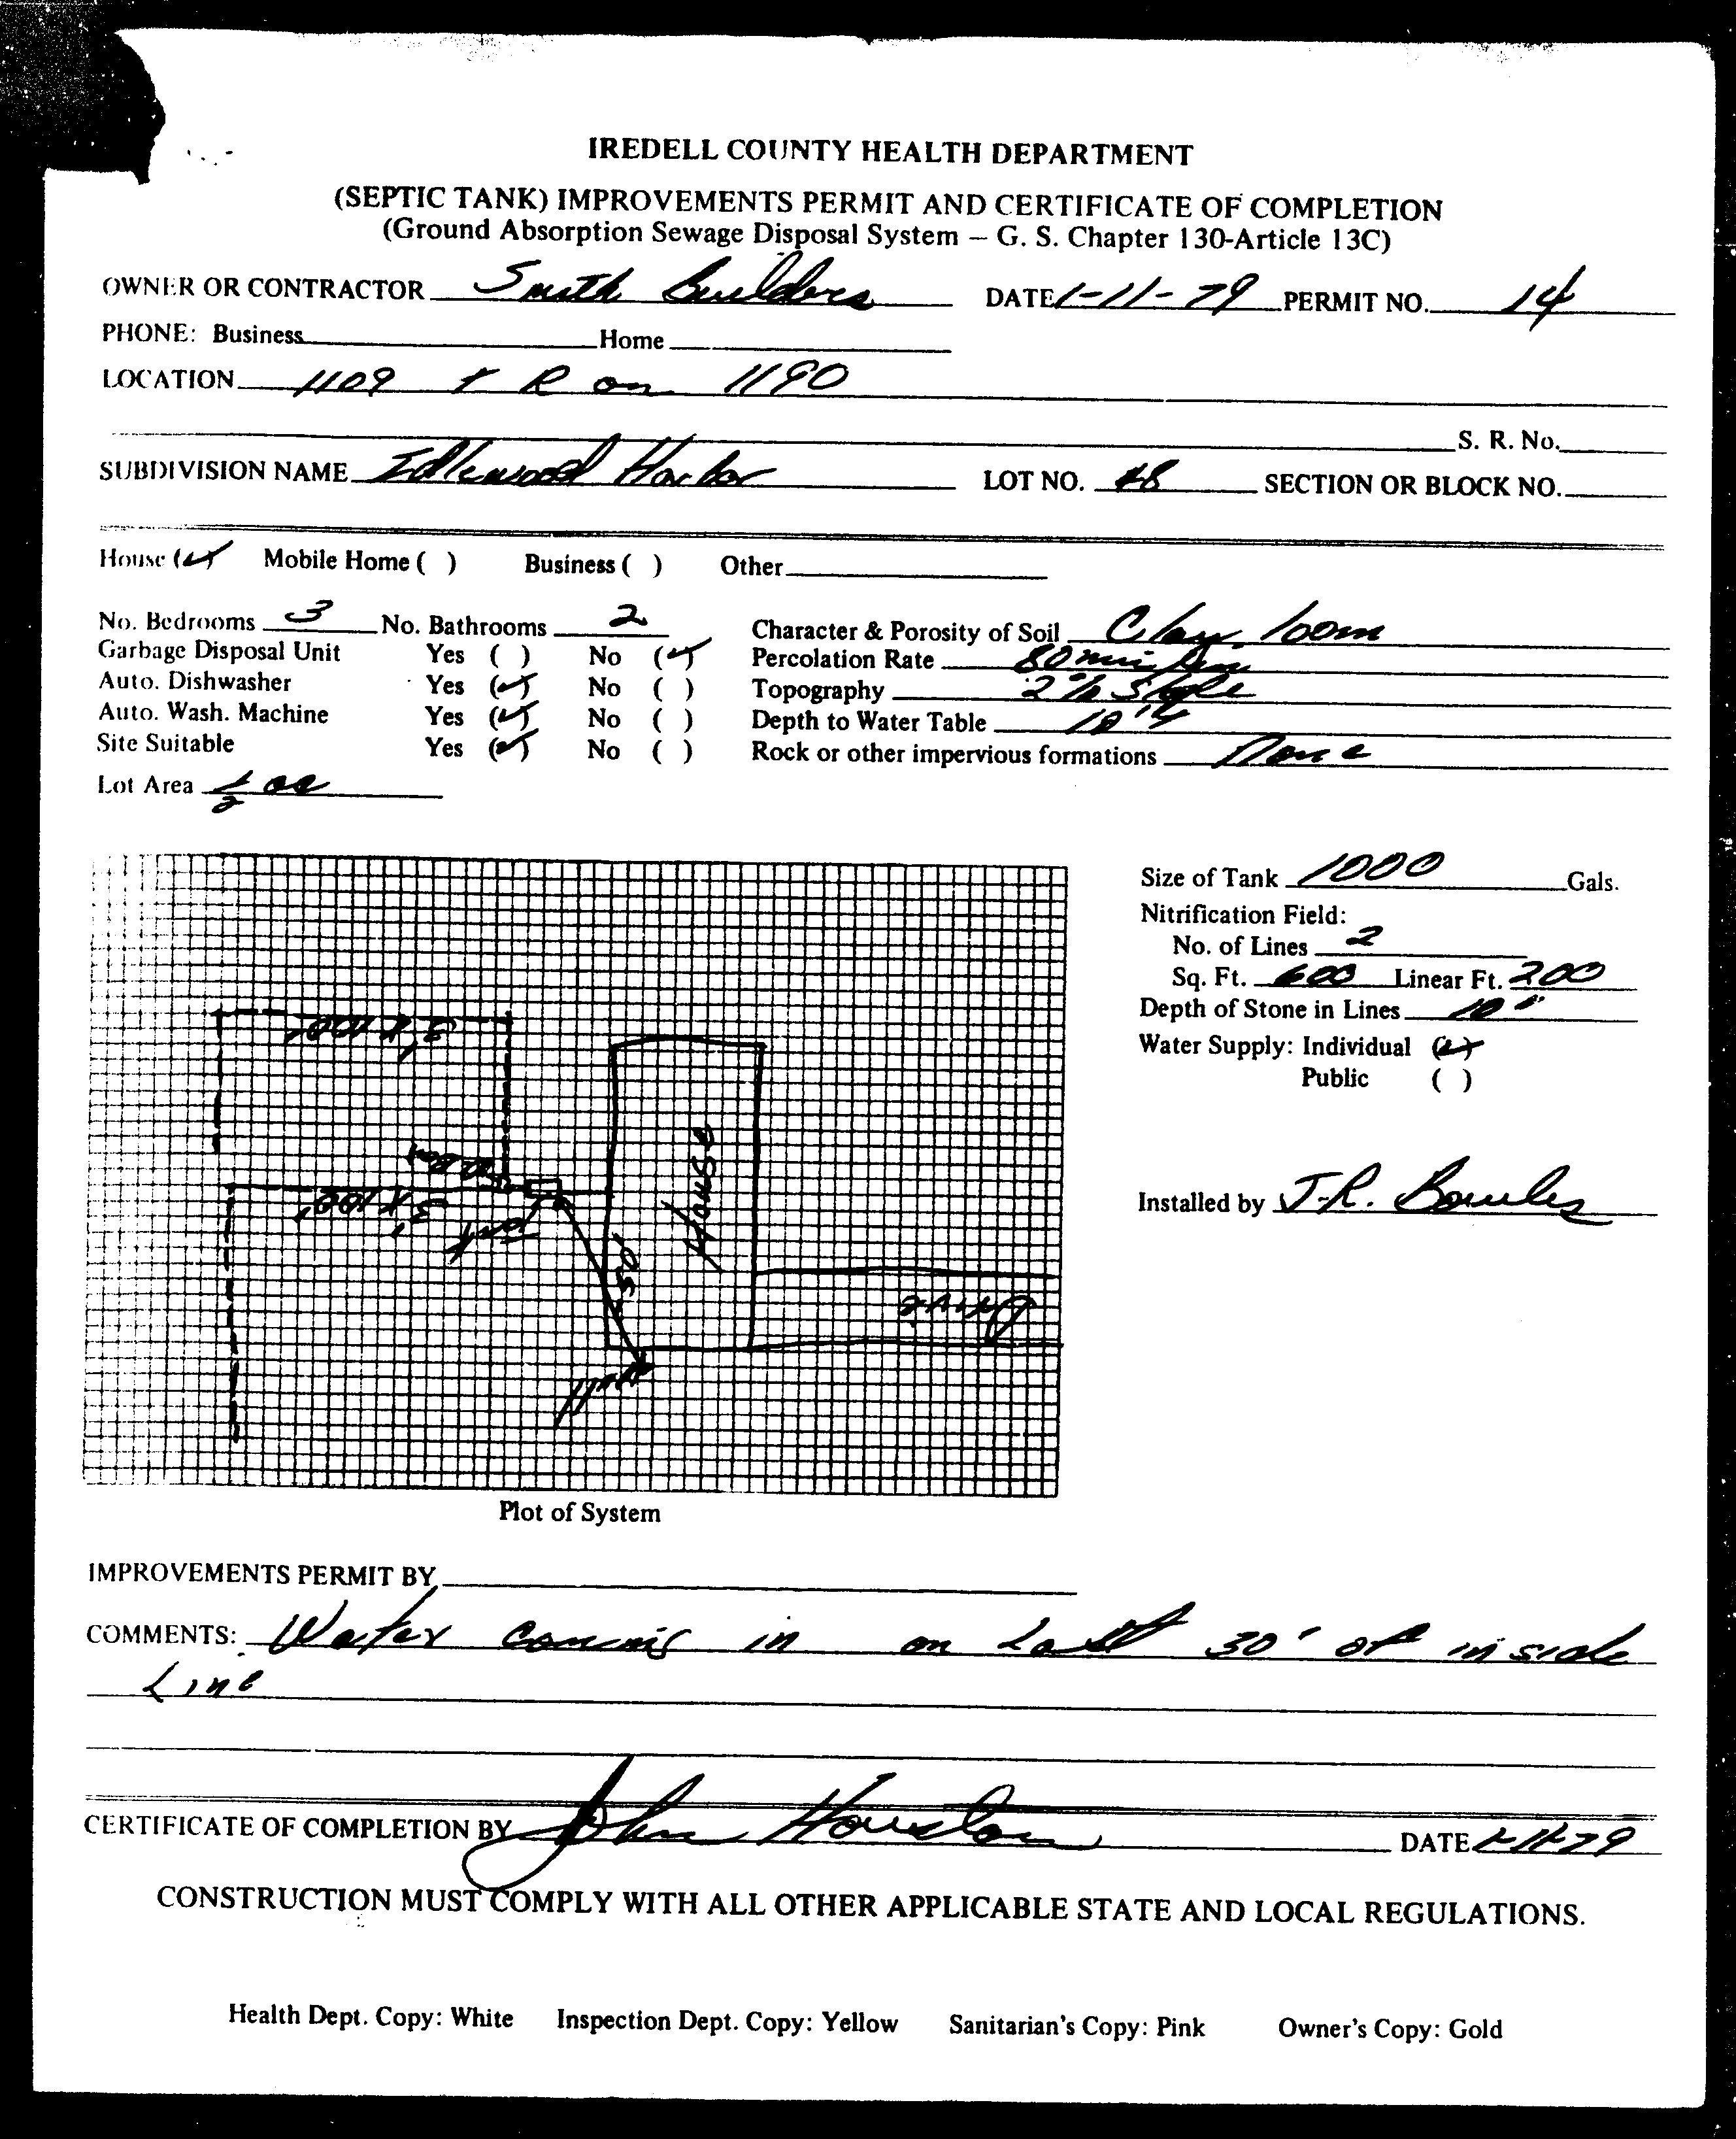 IREDELL COUNTY HEALTH DEPARTMENT
(SEPTIC TANK) IMPROVEMENTS PERMIT AND CERTIFICATE OF COMPLETION
(Ground Absorption Sewage Disposal System — G. S. Chapter 130-Article 13C)
OWNER OR CONTRACTOR Smith Builders DATE 1-11-79 PERMIT NO. 14
PHONE: Business Home
LOCATION 1109 R on 1190
S. R. No.
SUBDIVISION NAME Idlewood Harbor LOT NO. 48 SECTION OR BLOCK NO.
House (✓) Mobile Home ( ) Business ( ) Other
No. Bedrooms 3 No. Bathrooms 2 Character & Porosity of Soil Clay loom
Garbage Disposal Unit Yes ( ) No (✓) Percolation Rate 80 min
Auto. Dishwasher Yes (✓) No ( ) Topography 2% Slope
Auto. Wash. Machine Yes (✓) No ( ) Depth to Water Table
Site Suitable Yes (✓) No ( ) Rock or other impervious formations None
Lot Area 1/2 ac
Size of Tank 1000 Gals.
Nitrification Field:
No. of Lines 2
Sq. Ft. 600 Linear Ft. 200
Depth of Stone in Lines 10"
Water Supply: Individual (✓)
Public ( )
3' x 100'
House
3' x 100'
50'
Drive
Installed by J.R. Bowles
Plot of System
IMPROVEMENTS PERMIT BY
COMMENTS: Water coming in on Last 30' of inside
Line
CERTIFICATE OF COMPLETION BY John Houston DATE 1-11-79
CONSTRUCTION MUST COMPLY WITH ALL OTHER APPLICABLE STATE AND LOCAL REGULATIONS.
Health Dept. Copy: White Inspection Dept. Copy: Yellow Sanitarian's Copy: Pink Owner's Copy: Gold